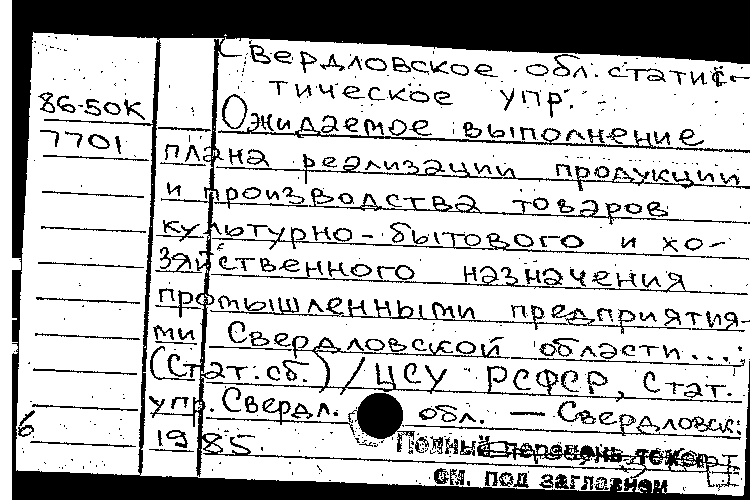 Свердловское обл. статис-
тическое упр.
86-50К
Ожидаемое выполнение
7701
плана реализации продукции
и производства товаров
культурно-бытового и хо-
зяйственного назначения
промышленными предприятия-
ми Свердловской области...:
(Стат. сб.) / ЦСУ РСФСР, Стат.
упр. Свердл. обл. — Свердловск:
6
1985.
Полный перечень
см. под заглавием